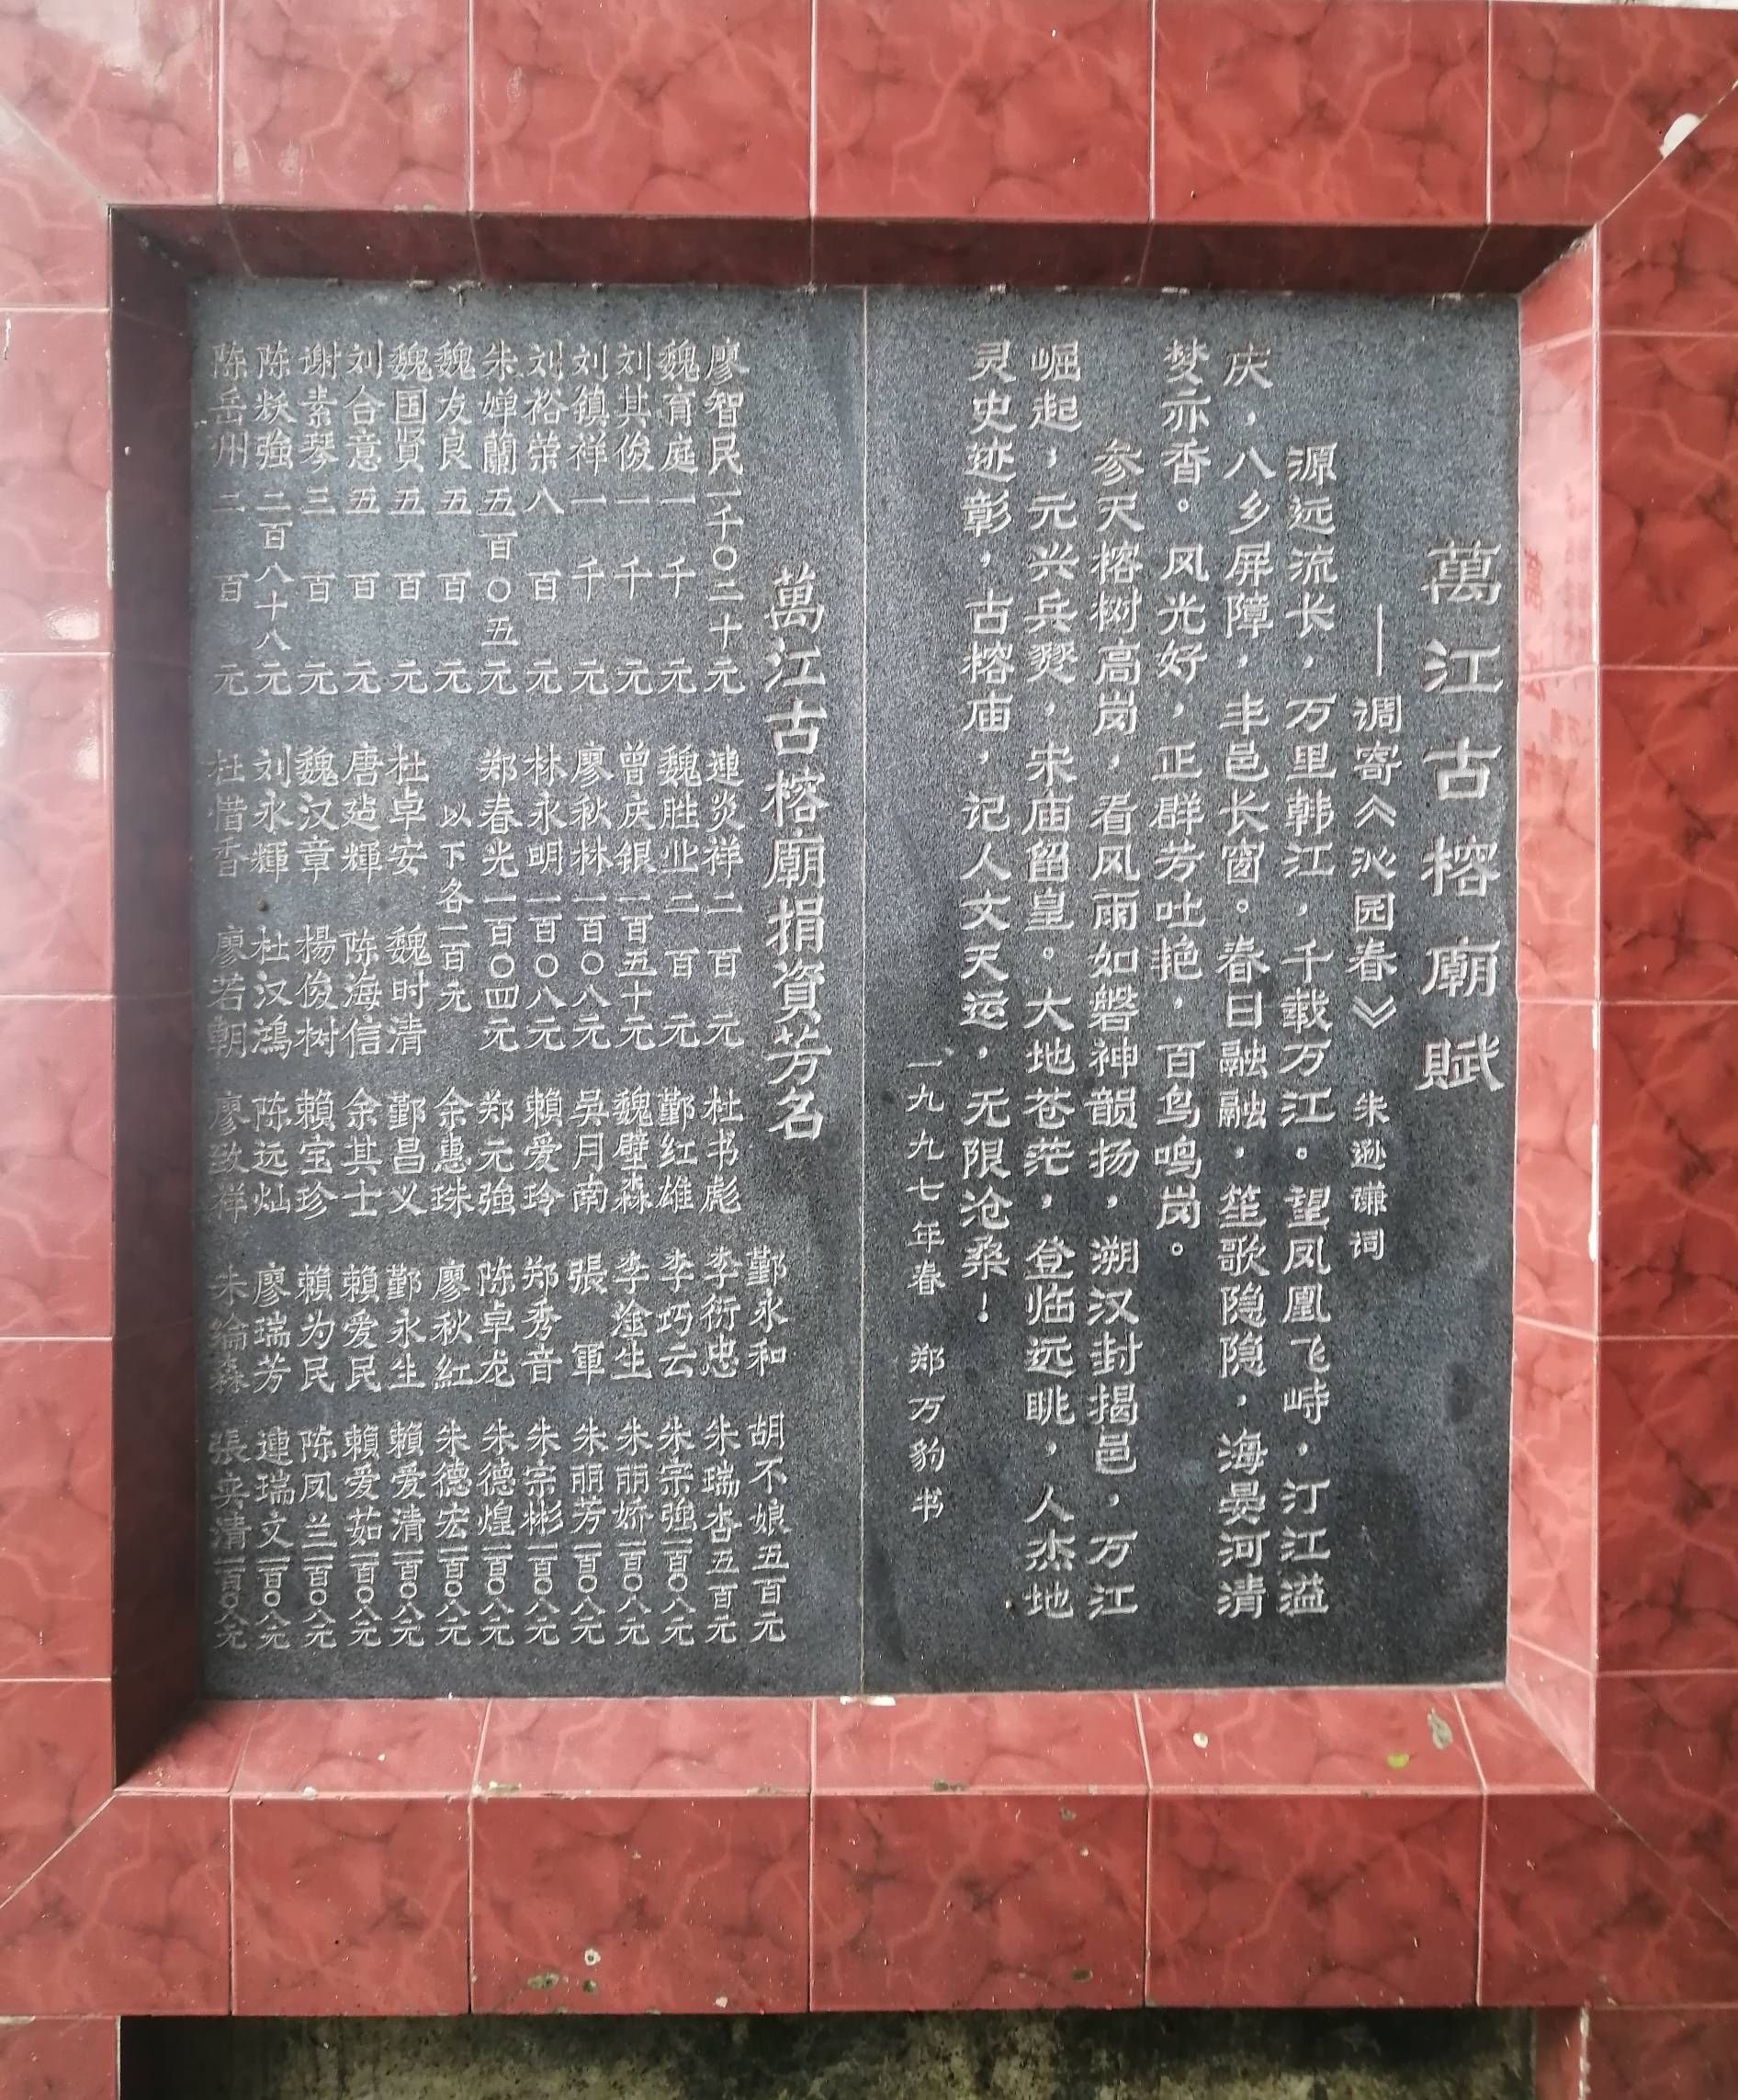 萬江古榕廟賦
——调寄《沁园春》 朱逊谦词
源远流长，万里韩江，千载万江。望凤凰飞峙，汀江溢
庆，八乡屏障，丰邑长窗。春日融融，笙歌隐隐，海晏河清
梦亦香。风光好，正群芳吐艳，百鸟鸣岗。
参天榕树高岗，看风雨如磐神韻扬，溯汉封揭邑，万江
崛起，元兴兵燹，宋庙留皇。大地苍茫，登临远眺，人杰地
灵史迹彰，古榕庙，记人文天运，无限沧桑！
一九九七年春 郑万豹书
萬江古榕廟捐資芳名
鄞永和 胡不娘五百元
廖智民一千〇二十元 連炎祥二百元 杜书彪 李衍忠 朱瑞杏五百元
魏育庭一千元 魏胜业二百元 鄞红雄 李巧云 朱宗強一百〇八元
刘其俊一千元 曾庆银一百五十元 魏壁森 李淦生 朱丽娇一百〇八元
刘镇祥一千元 廖秋林一百〇八元 吳月南 張軍 朱丽芳一百〇八元
刘裕荣八百元 林永明一百〇八元 賴爱玲 郑秀音 朱宗彬一百〇八元
朱婵蘭五百〇五元 郑春光一百〇四元 郑元強 陈卓龙 朱德煌一百〇八元
魏友良五百元 以下各一百元 余惠珠 廖秋紅 朱德宏一百〇八元
魏国贤五百元 杜卓安 魏时清 鄞昌义 鄞永生 賴爱清一百〇八元
刘合意五百元 唐廷輝 陈海信 余其士 賴爱民 賴爱茹一百〇八元
谢素琴三百元 魏汉章 楊俊树 賴宝珍 賴为民 陈凤兰一百〇八元
陈燚強二百八十八元 刘永輝 杜汉鴻 陈远灿 廖瑞芳 連瑞文一百〇八元
陈岳州二百元 杜惜香 廖若朝 廖致祥 朱綸森 張英清一百〇八元